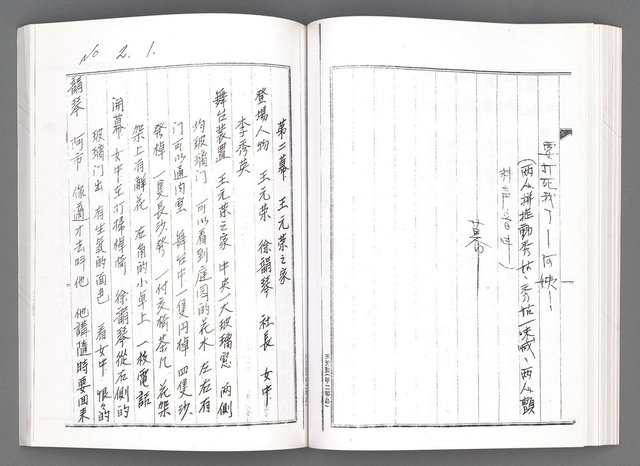 要打死我了——阿姨!
(兩人拼推動秀姑、秀姑一味喊、兩人顫
幕
No 2. 1.
第二幕 王元荣之家
登場人物 王元荣 徐韻琴 社長 女中
李秀英
舞台裝置 王元荣之家 中央一大玻璃窓 两側
灼玻璃门 可以看到庭园的花水 左右有
门可以通内室 舞台中一隻円棹 四隻沙
發棹 一隻長沙發 一付交椅茶几 花架
架上有鮮花 在角的小卓上 一枚電話
開幕 女中在打掃棹椅 徐韻琴從左側的
玻璃门出 有生氣的面色 看女中 恨々的
韻琴 阿市 你適才去叫他 他講隨時要回來